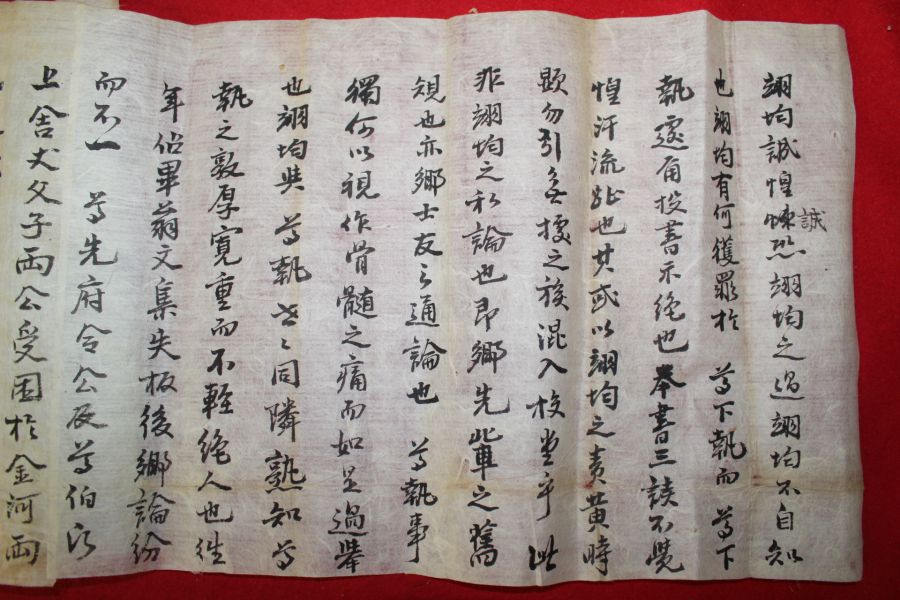 翊均誠惶悚恐翊均之過翊均不自知
誠
也翊均有何獲罪於 尊下執而 尊下
執遽有投書示絶也奉書三讀不覺
惶汗流趾也其或以翊均之責黃時
顯勿引無據之族混入校堂乎此
非翊均之私論也即鄉先輩之舊
規也亦鄉士友之通論也 尊執事
獨何以視作骨髓之痛而如是過擧
也翊均與 尊執世之同隣熟知尊
執之敦厚寬重而不輕絶人也往
年佔畢翁文集失板後鄉論紛
而不一 尊先府令公及尊伯氏
上舍丈父子兩公受困於金河兩